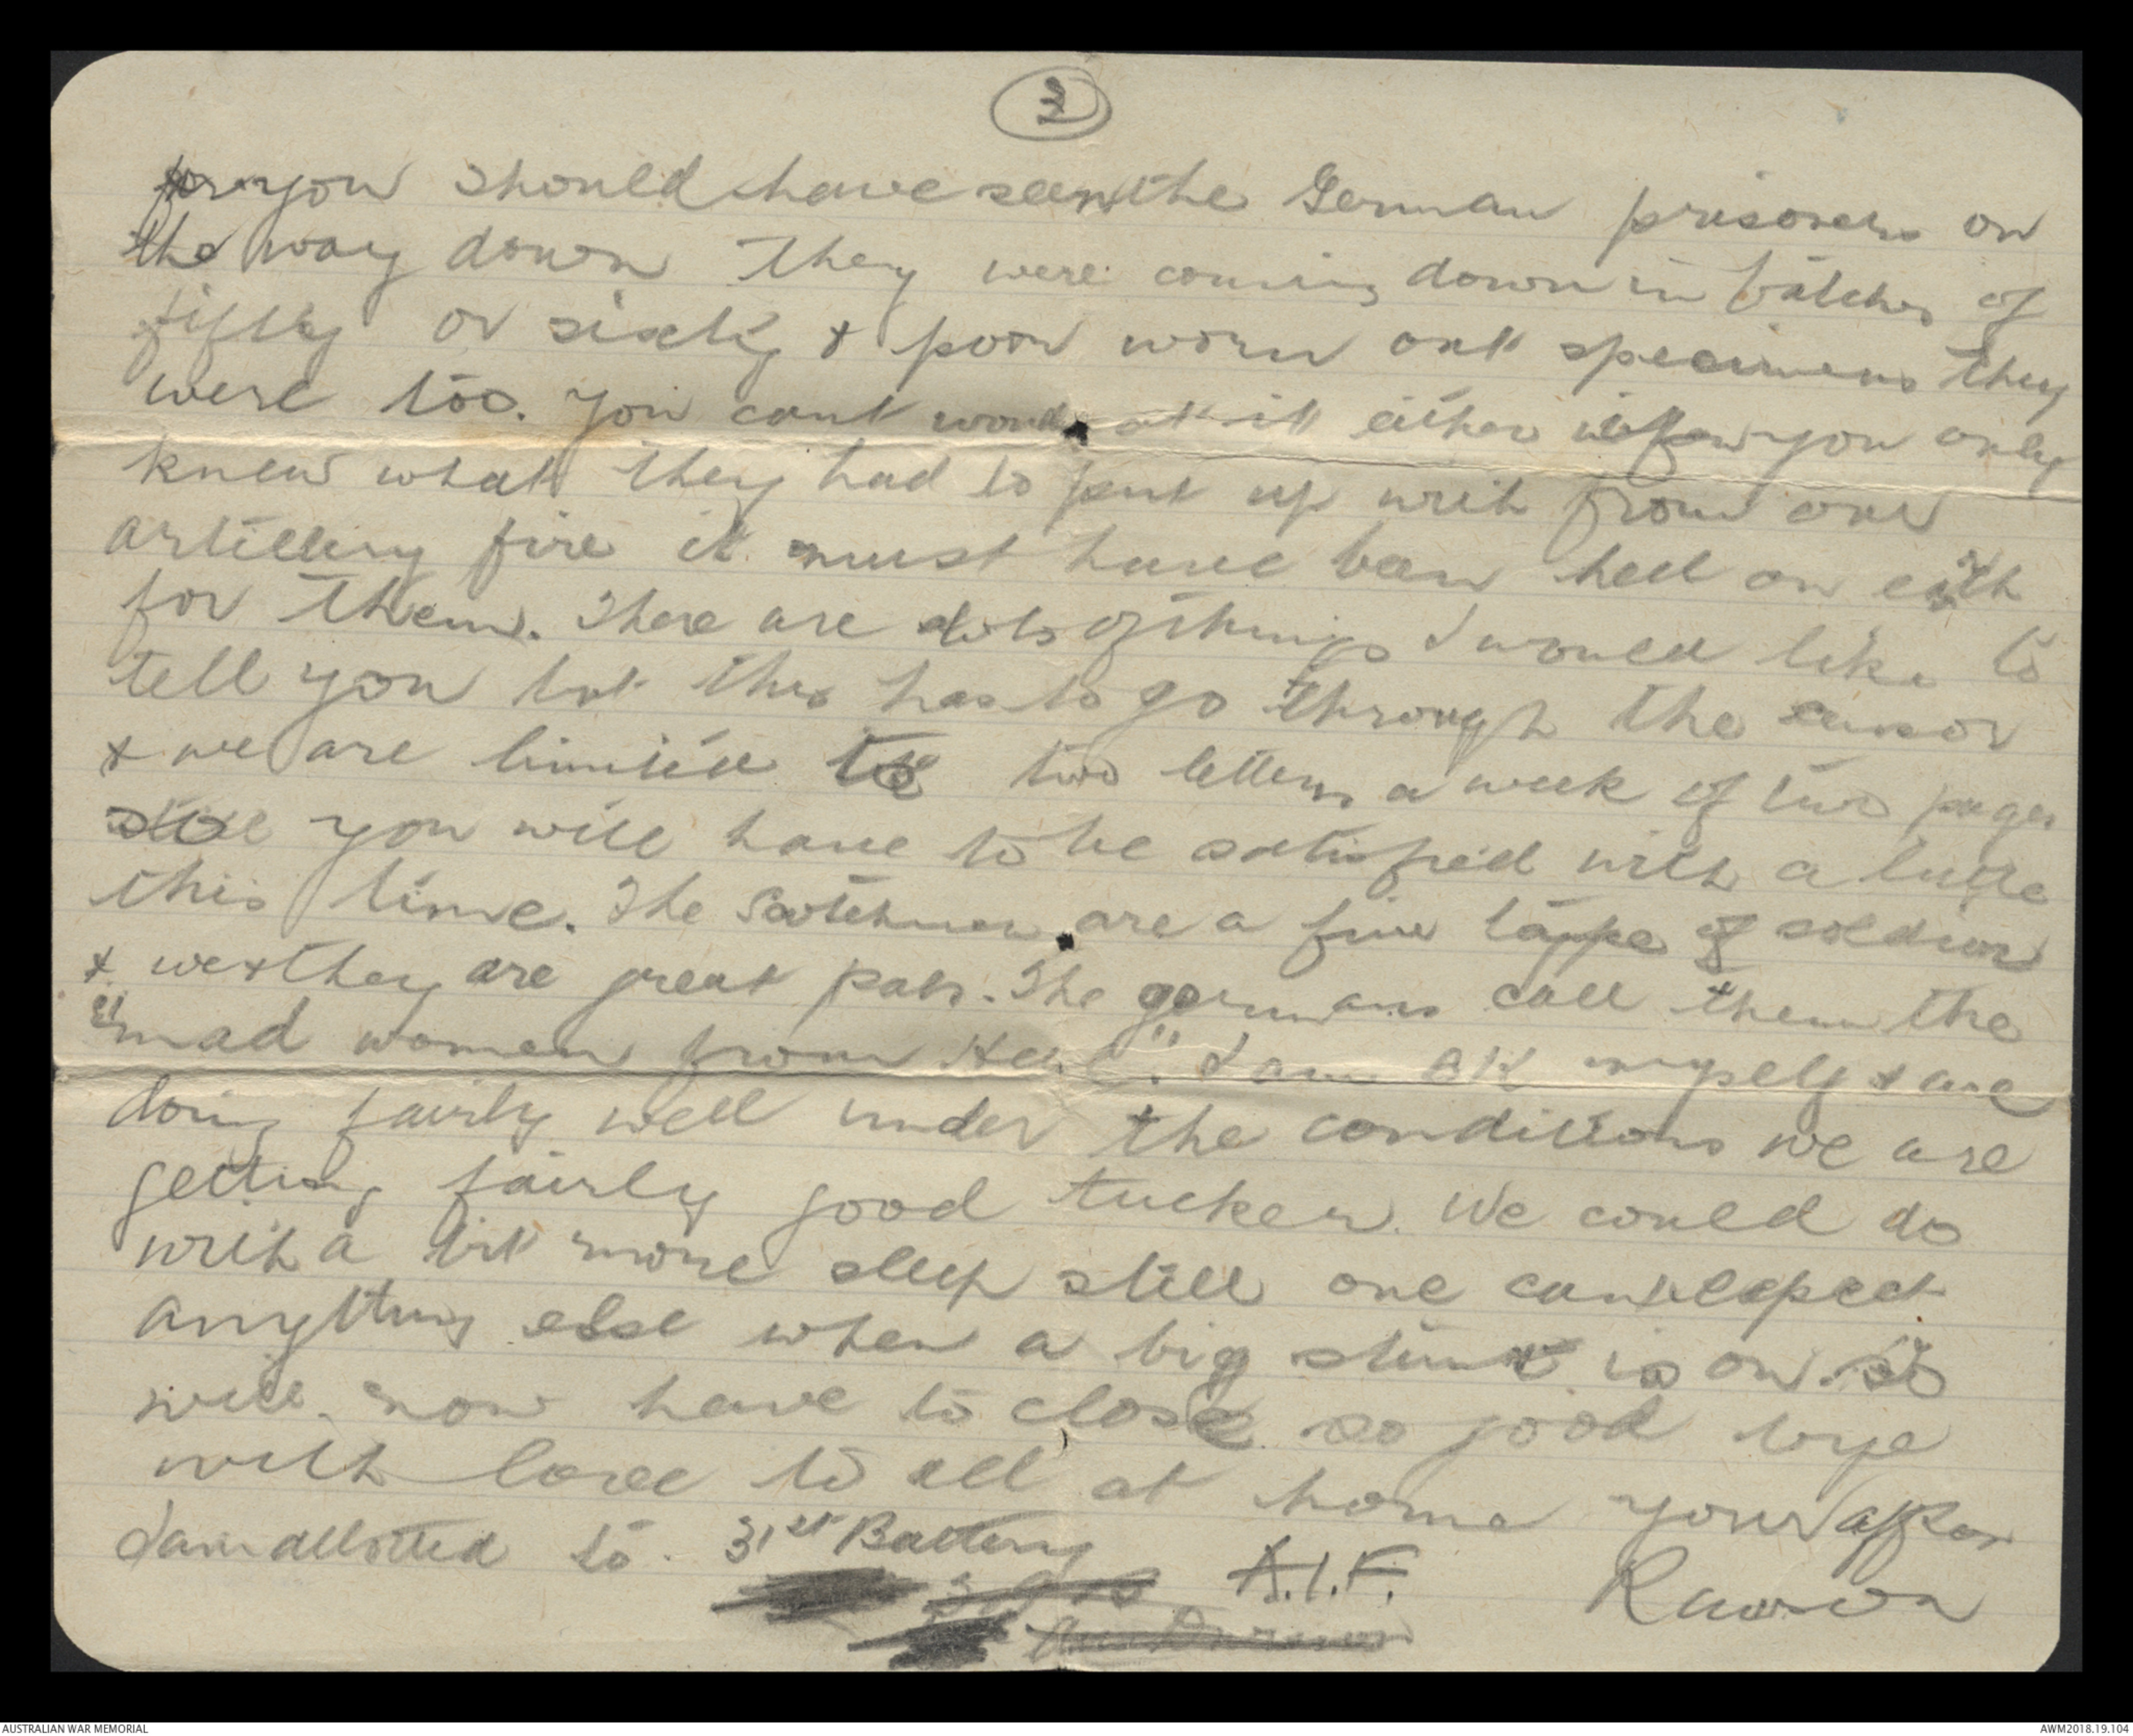 2
you should have seen the German prisoners on
the way down They were coming down in batches of
fifty or sixty & poor worn out specimens they
were too. You cant wonder at it either if you only
knew what they had to put up with from our
artillery fire it must have been hell on earth
for them. There are lots of things I would like to
tell you but this has to go through the censor
& we are limited to two letters a week of two pages
so you will have to be satisfied with a little
this time. The Scotchmen are a fine type of soldier
& we & they are great pals. The germans call them the
"mad women from Hell". I am OK myself & are
doing fairly well under the conditions we are
getting fairly good tucker. We could do
with a bit more sleep still one cant expect
anything else when a big stunt is on.
will now have to close so good bye
with love to all at home your affec
I am allotted to 31st Battery A.I.F. Rawson
AUSTRALIAN WAR MEMORIAL
AWM2018.19.104